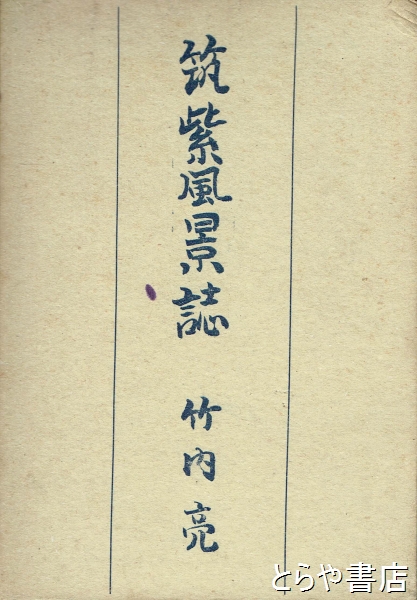 筑紫風景誌
竹内亮
とらや書店